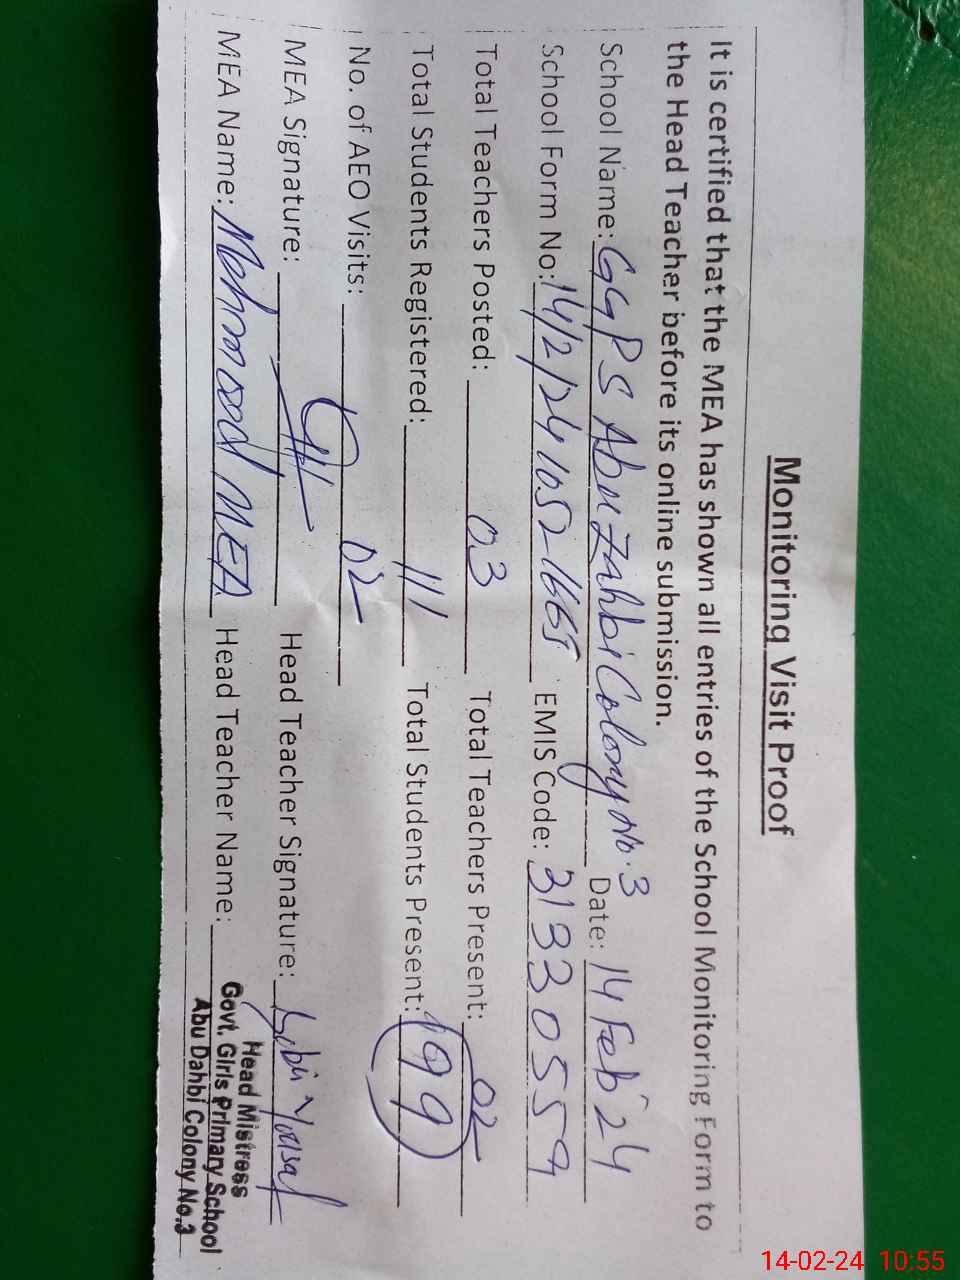 Monitoring Visit Proof
It is certified that the MEA has shown all entries of the School Monitoring Form to
the Head Teacher before its online submission.
School Name: GGPS Abu Zahbi Colony No.3 Date: 14 Feb 24
School Form No: 14/2/24 1052-1665 EMIS Code: 31330559
Total Teachers Posted: 03 Total Teachers Present: 02
Total Students Registered: 111 Total Students Present: 99
No. of AEO Visits: 02
MEA Signature: Head Teacher Signature:
MEA Name: Mehmood MEA Head Teacher Name:
Head Mistress
Govt. Girls Primary School
Abu Dahbi Colony No.3
14-02-24 10:55